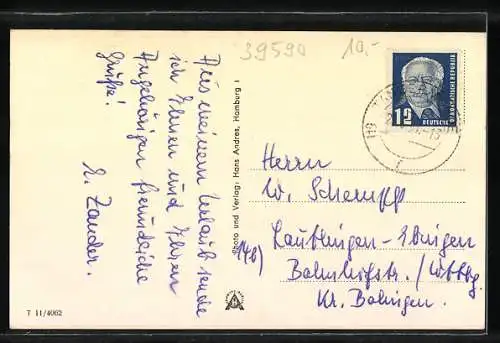 39590 10.-
Aus meinem Urlaub sende
ich Ihnen und Ihren
Angehörigen freundliche
Grüße!
E. Zander.
Photo und Verlag: Hans Andres, Hamburg 1
12
DEUTSCHE
Herrn
W. Schempp
Lautlingen-Ebingen
14b)
Bahnhofstr. /Wttbg.
Kr. Balingen.
T 11/4062